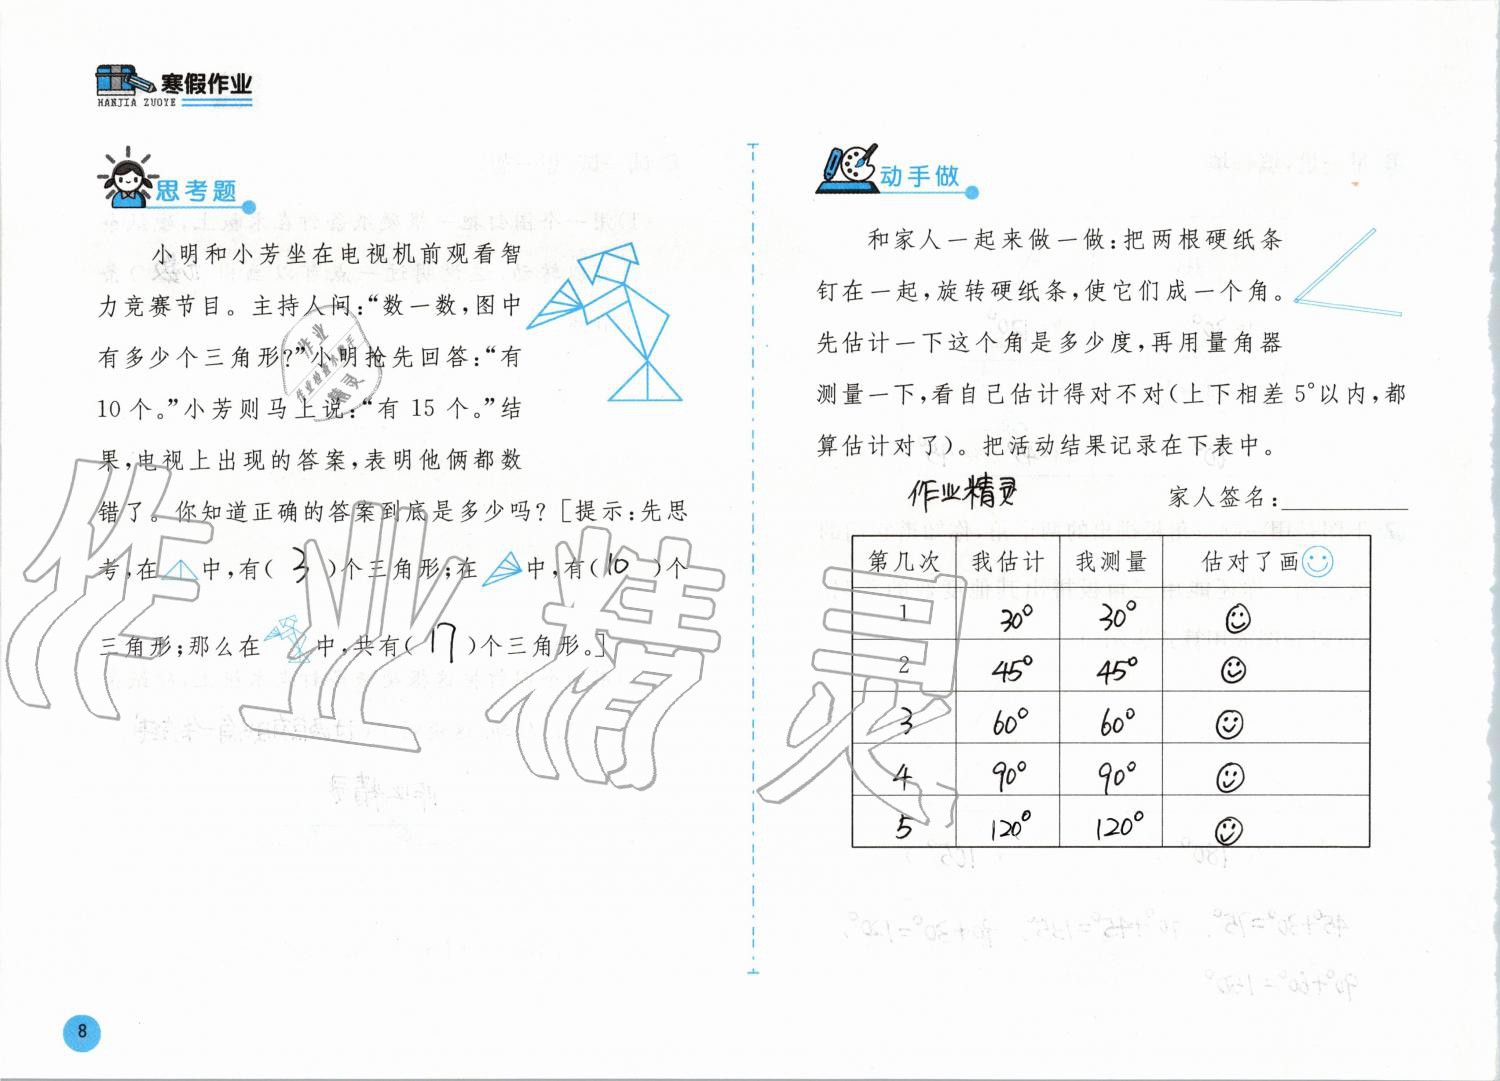 寒假作业
HANJIA ZUOYE
思考题
小明和小芳坐在电视机前观看智
力竞赛节目。主持人问:“数一数,图中
有多少个三角形?”小明抢先回答:“有
10个。”小芳则马上说:“有15个。”结
果,电视上出现的答案,表明他俩都数
错了。你知道正确的答案到底是多少吗?[提示:先思
考,在 中,有( 3 )个三角形;在 中,有( 10 )个
三角形;那么在 中,共有( 17 )个三角形。]
作业精灵
8
动手做
和家人一起来做一做:把两根硬纸条
钉在一起,旋转硬纸条,使它们成一个角。
先估计一下这个角是多少度,再用量角器
测量一下,看自己估计得对不对(上下相差5°以内,都
算估计对了)。把活动结果记录在下表中。
作业精灵 家人签名:
第几次 我估计 我测量 估对了画
1 30° 30°
2 45° 45°
3 60° 60°
4 90° 90°
5 120° 120°